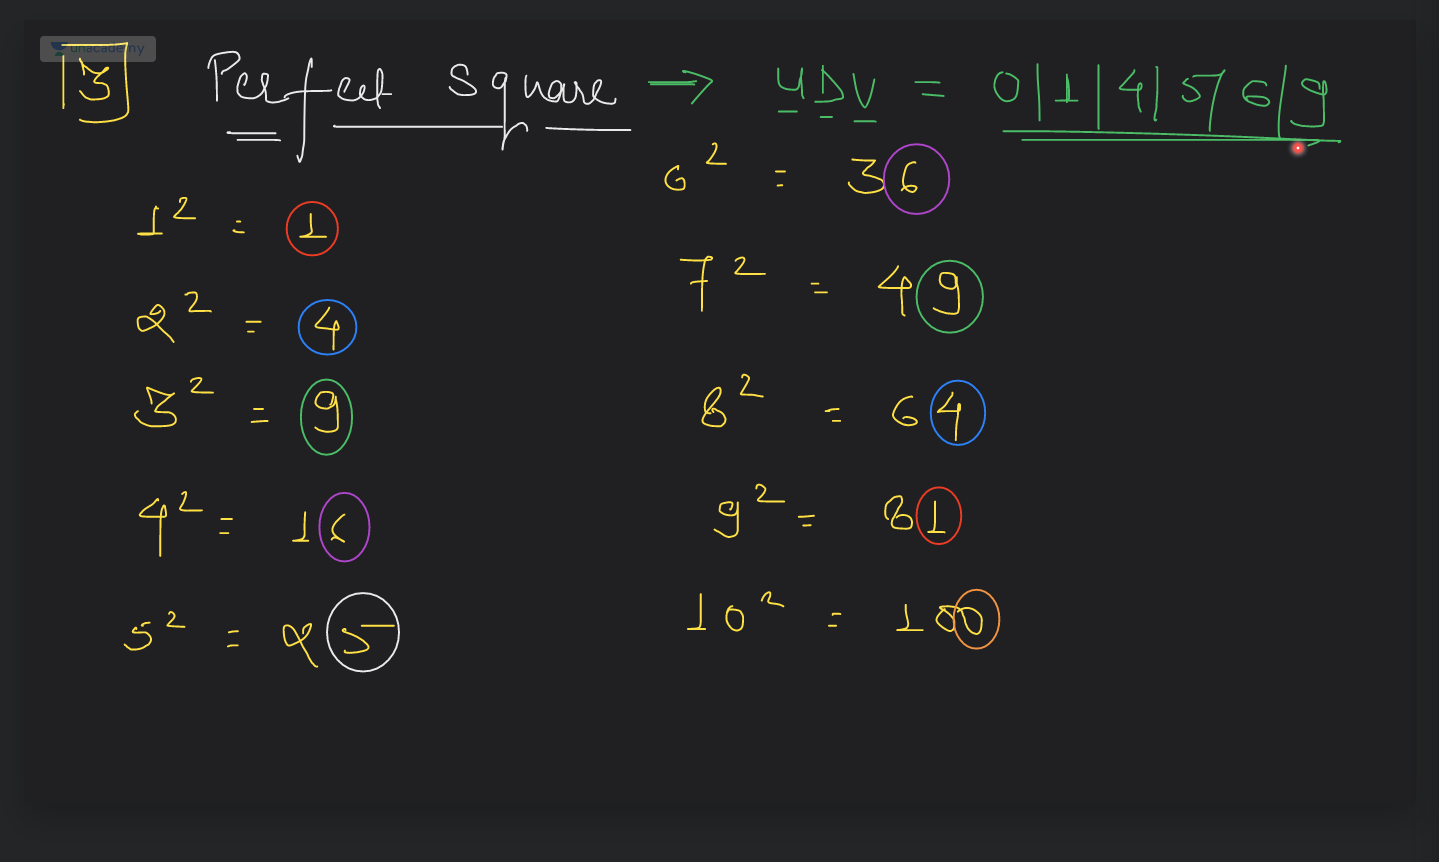 unacademy
3 Perfect Square → UDV = 0|1|4|5|6|9
1² = 1
2² = 4
3² = 9
4² = 16
5² = 25
6² = 36
7² = 49
8² = 64
9² = 81
10² = 100